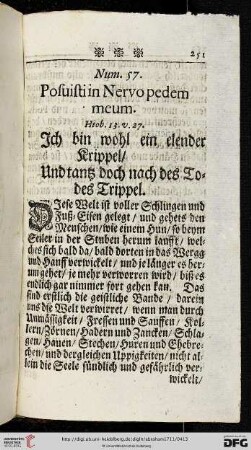 251
Num. 57.
Posuisti in Nervo pedem
meum.
Hiob. 13. v. 27.
Ich bin wohl ein elender
Krippel/
Und tantz doch nach des To-
des Trippel.
DIese Welt ist voller Schlingen und
Fuß-Eisen gelegt/ und gehets den
Menschen/ wie einem Hun/ so beym
Seiler in der Stuben herum laufft/ wel-
ches sich bald da/ bald dorten in das Werag
und Hanff verwickelt/ und je länger es her-
um gehet/ je mehr verworren wird/ biß es
endlich gar nimmer fort gehen kan. Das
sind erstlich die geistliche Bande/ darein
uns die Welt verwirret/ wenn man durch
Unmässigkeit/ Fressen und Sauffen/ Kol-
lern/ Zörnen/ Hadern und Zancken/ Schla-
gen/ Hauen/ Stechen/ Huren und Ehebre-
chen/ und dergleichen Uppigkeiten/ nicht al-
lein die Seele sündlich und gefährlich ver-
wickelt/
http://digi.ub.uni-heidelberg.de/diglit/abraham1711/0413
© Universitätsbibliothek Heidelberg